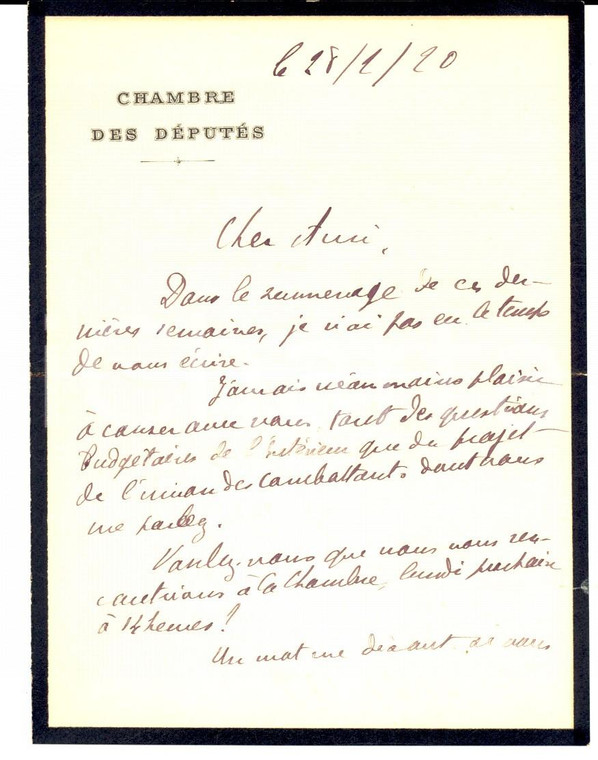 le 28/2/20
CHAMBRE
DES DÉPUTÉS
Cher Ami,
Dans le surmenage de ces der-
nières semaines, je n'ai pas eu le temps
de vous écrire.
J'aurais néanmoins plaisir
à causer avec vous tant des questions
budgétaires de l'Intérieur que du projet
de l'union des combattants dont vous
me parlez.
Voulez-vous que nous nous ren-
contrions à la Chambre, lundi prochain
à 14 heures ?
Un mot me disant si vous